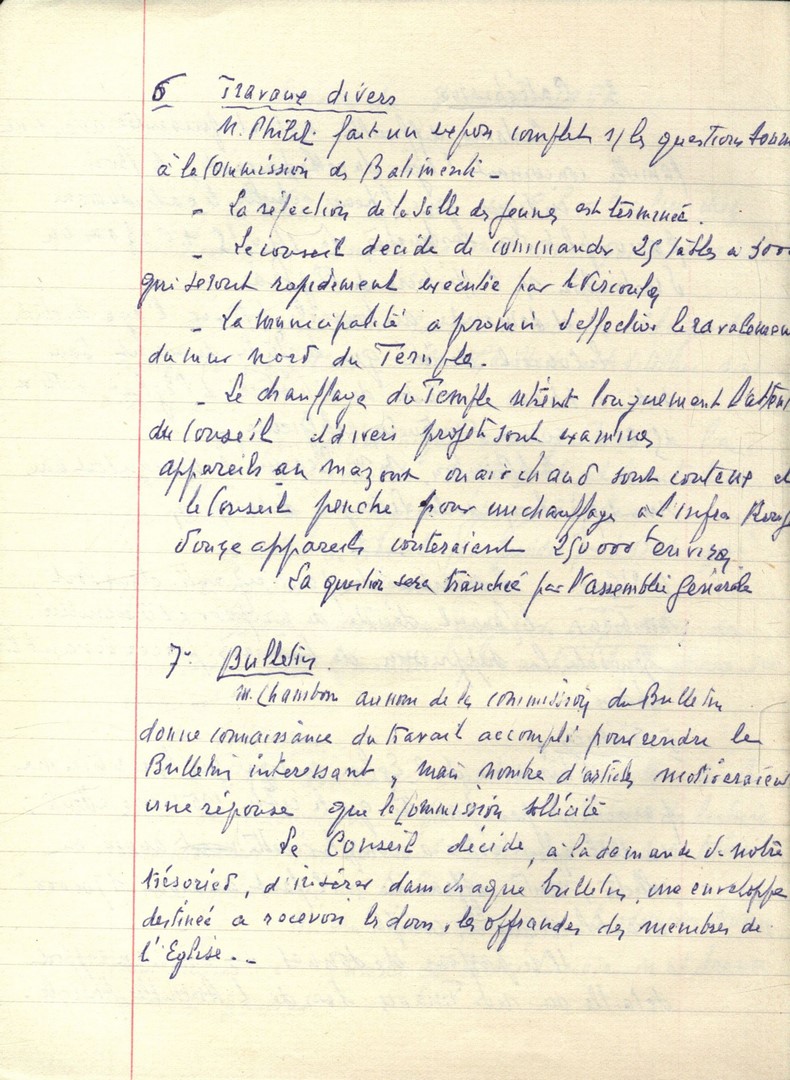 6 Travaux divers
M. Philit. fait un expose complet s/ les questions
à la Commission des Batiments -
- La réfection de la Salle des Jeunes est terminée.
- Le conseil décide de commander 25 tables a 3000
qui seront rapidement executée par
- La municipalité a promis d'effectuer le ravalement
du mur nord du Temple.
- Le chauffage du Temple retient longuement l'atten
du Conseil et divers projets sont examines
appareils au mazout on air chaud sont couteux et
le Conseil penche pour un chauffage à l'infra Roug
Douze appareils couteraient 250 000 f environ
La question sera tranchée par l'assemblée Générale
7- Bulletin
M. Chambon au nom de la commission du Bulletin
donne connaissance du travail accompli pour rendre le
Bulletin interessant, mais nombre d'articles motiveraient
une réponse que la Commission sollicite
Le Conseil décide, à la demande de notre
trésorier, d'insérer dans chaque bulletin, une enveloppe
destinée a recevoir les dons, les offrandes des membres de
l'Eglise. -